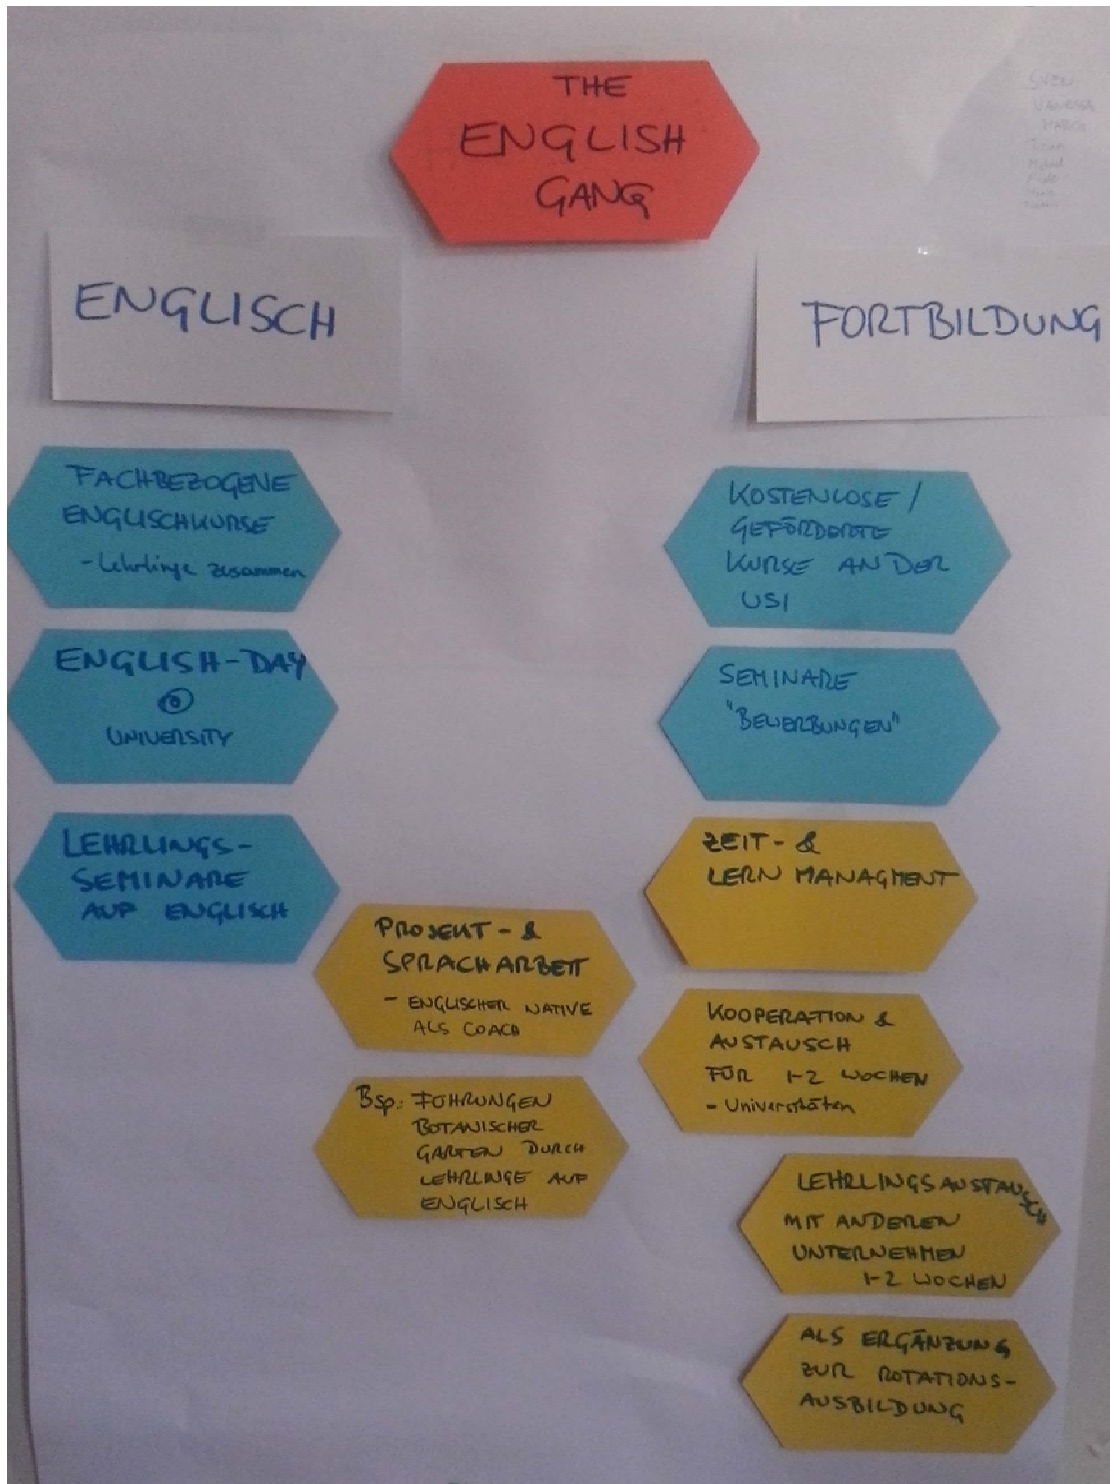 THE
ENGLISH
GANG
SVEN
VANESSA
ENGLISCH
FORTBILDUNG
FACHBEZOGENE
ENGLISCHKURSE
- Lehrlinge zusammen
ENGLISH-DAY
@
UNIVERSITY
LEHRLINGS-
SEMINARE
AUF ENGLISCH
PROJEKT- &
SPRACHARBEIT
- ENGLISCHER NATIVE
ALS COACH
Bsp.: FÜHRUNGEN
BOTANISCHER
GARTEN DURCH
LEHRLINGE AUF
ENGLISCH
KOSTENLOSE /
GEFÖRDERTE
KURSE AN DER
USI
SEMINARE
"BEWERBUNGEN"
ZEIT- &
LERN MANAGMENT
KOOPERATION &
AUSTAUSCH
FÜR 1-2 WOCHEN
- Universitäten
LEHRLINGSAUSTAUSCH
MIT ANDEREN
UNTERNEHMEN
1-2 WOCHEN
ALS ERGÄNZUNG
ZUR ROTATIONS-
AUSBILDUNG